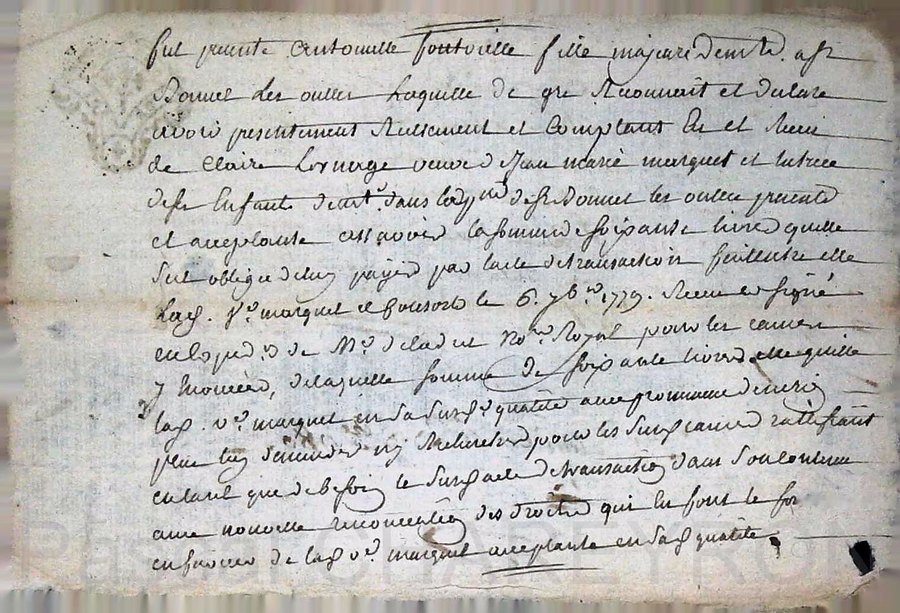 fut presente Antoinette fontvielle fille majeure demte. a st
Bonnet les oulles Laquelle de gre Reconnait et declare
avoir presentement Reellement et Comptant Eu et Receu
de Claire Lesnage veuve de Jean marie marquet et tutrice
de ses Enfants demt. dans la de st Bonnet les oulles presente
et acceptante assavoir la somme de soixante livres quelle
sest obligée de luy payer par lacte de transaction entre elle
Lad. ve. marquet et le 6. 7bre. 1779. Receu et signé
en de Me. notre. Royal pour les causes
y Enoncées, de laquelle somme de soixante livres elle quitte
lad. ve. marquet en sa susd. qualité avec promesse de ne rien
plus luy demander ny Rechercher pour les susd causes ratiffiant
en tant que de besoin le susd acte de transaction dans son contenu
avec nouvelle des droits qui en font le
en faveur de lad ve. marquet acceptante en sad qualité